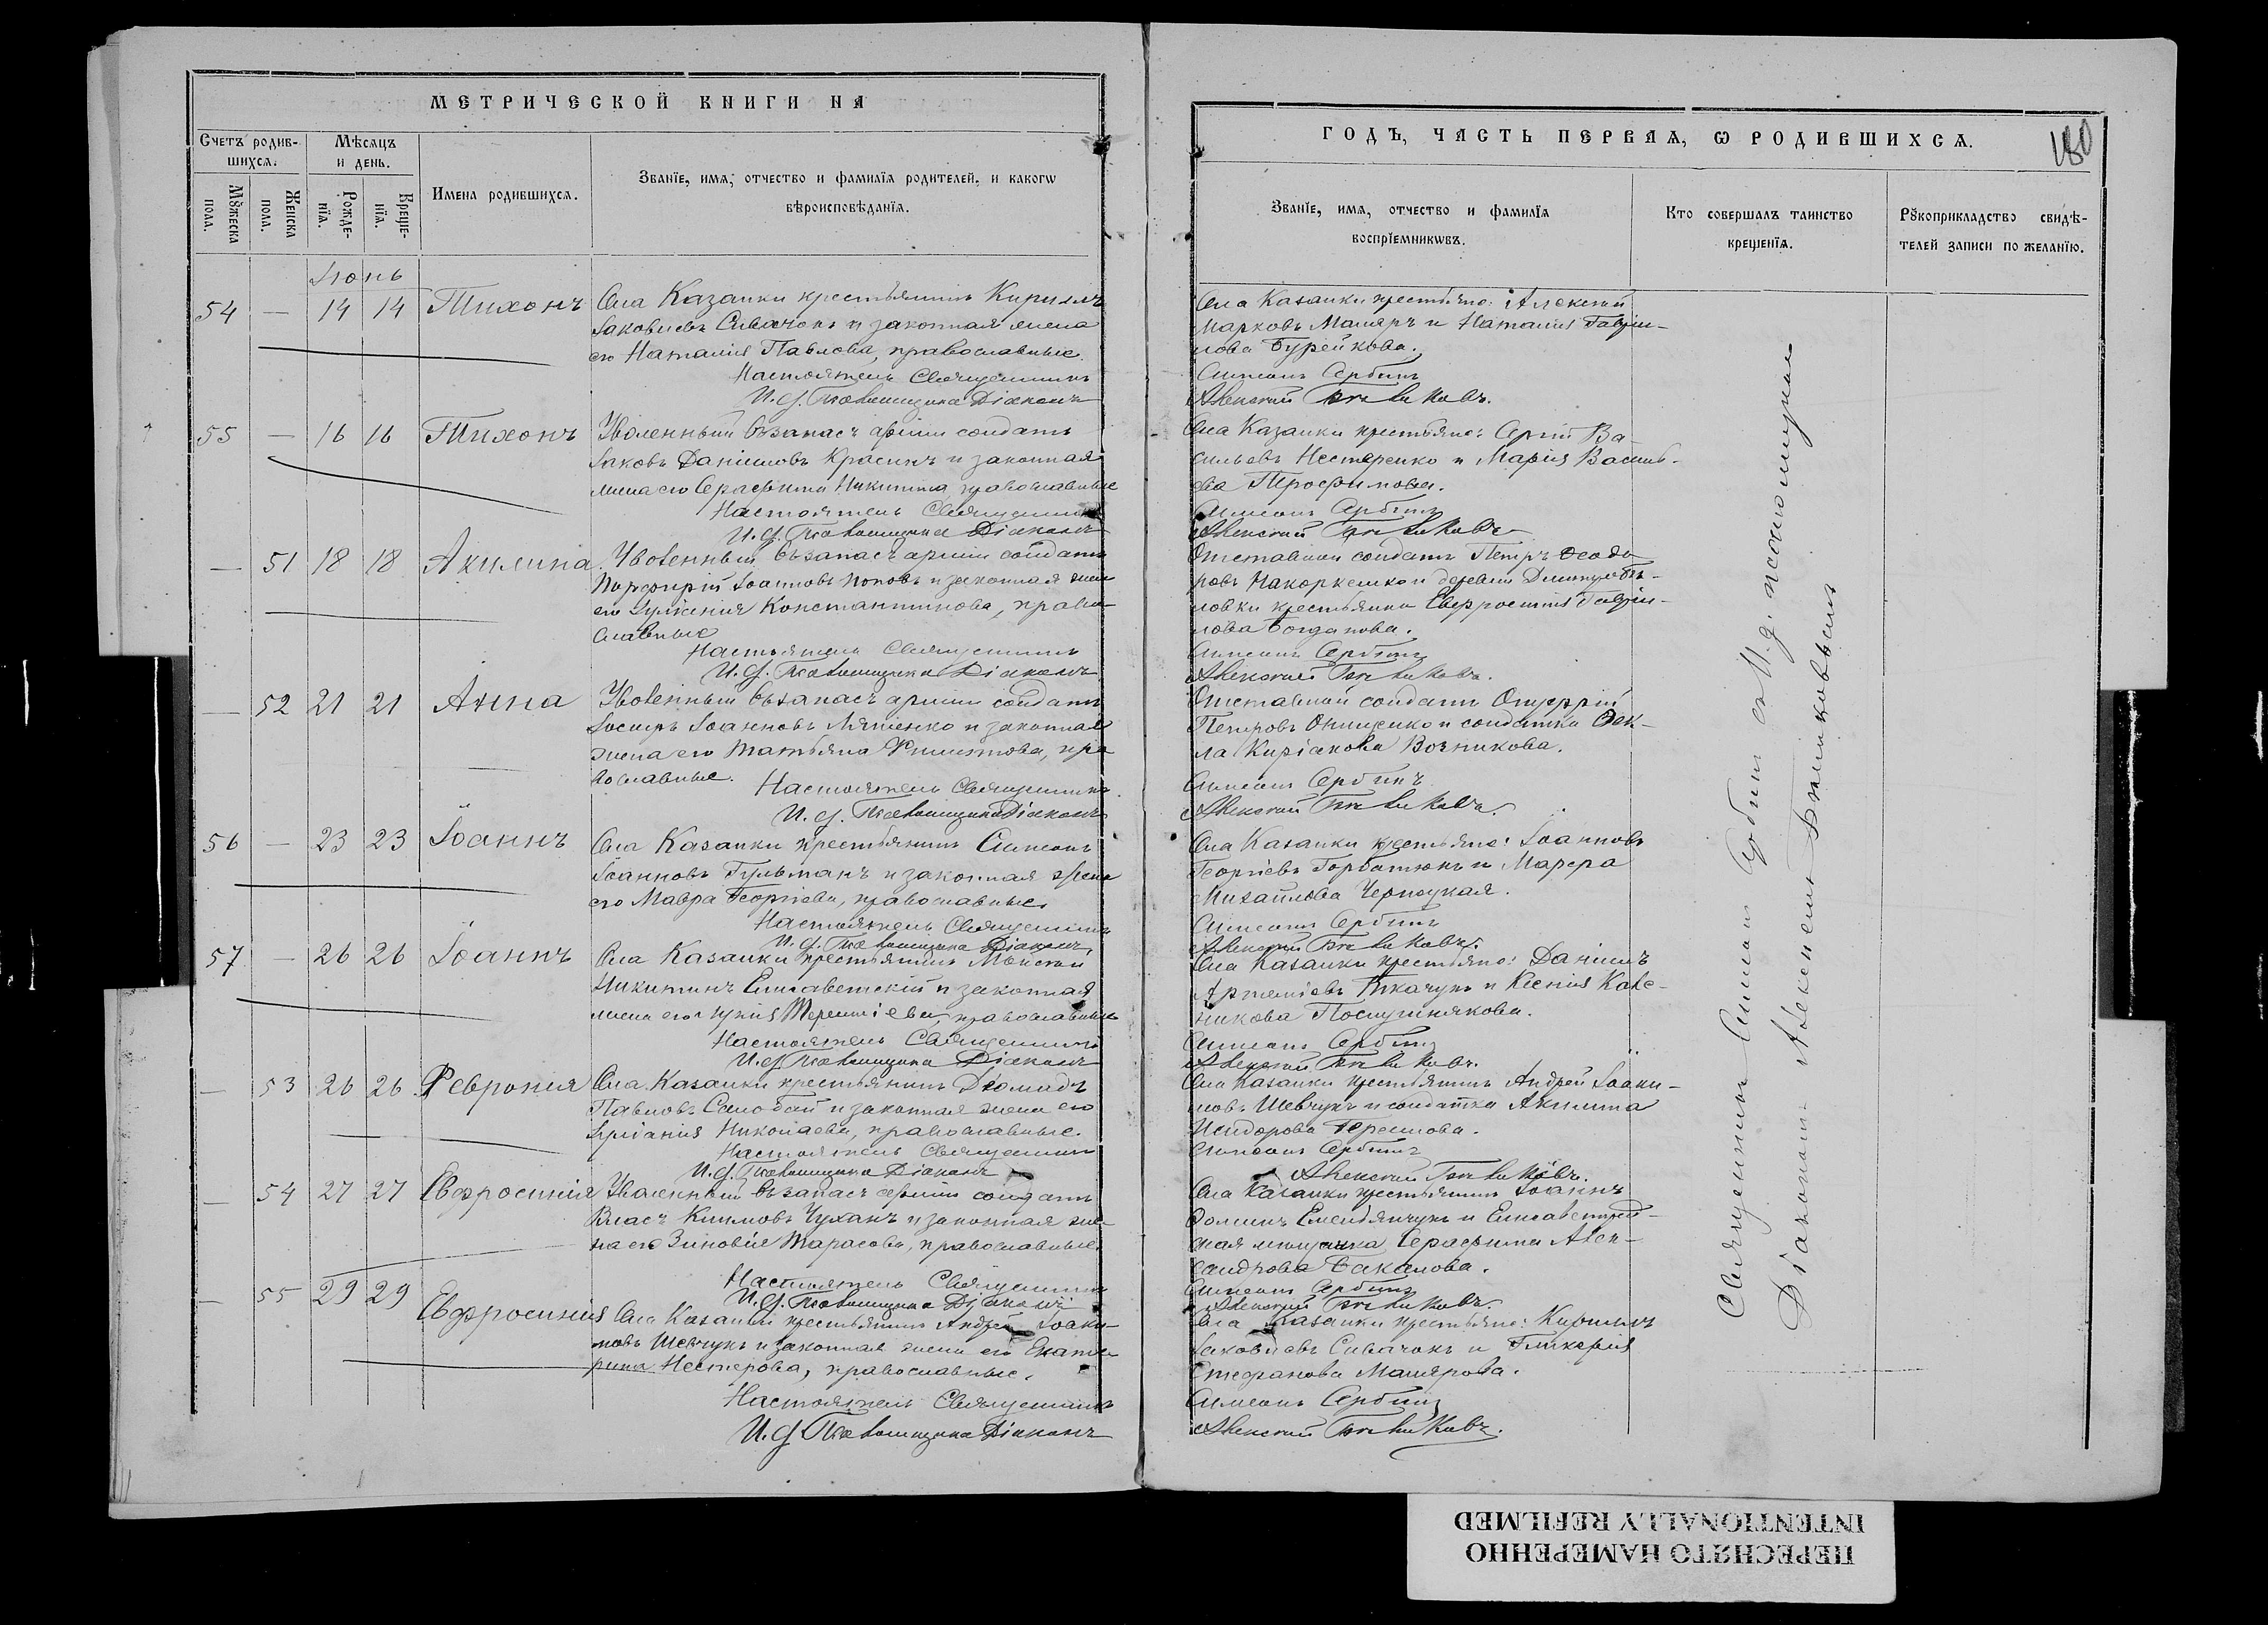 МЕТРИЧЕСКОЙ КНИГИ НА
Счетъ родив-
шихсѧ.
Мѣсѧцъ
и день.
Мꙋжеска
пола.
Женска
пола.
Рожде-
нїѧ.
Креще-
нїѧ.
Имена родившихсѧ.
Званїе, имѧ, отчество и фамилїѧ родителей, и какогѡ
вѣроисповѣданїѧ.
Іюнь
54 — 14 14 Тихонъ Села Казанки крестьянинъ Кириллъ
Іаковлевъ Сивачокъ и законная жена
его Наталія Павлова, православные.
Настоятель Священникъ
И. д. Псаломщика Діаконъ
55 — 16 16 Тихонъ Уволенный въ запасъ арміи солдатъ
Іаковъ Даніиловъ Красинъ и законная
жена его Серафима Никитина, православные
Настоятель Священникъ
И. д. Псаломщика Діаконъ
— 51 18 18 Акилина Уволенный въ запасъ арміи солдатъ
Порфирій Іоанновъ Поповъ и законная жена
его Іуліанія Константинова, право-
славные
Настоятель Священникъ
И. д. Псаломщика Діаконъ
— 52 21 21 Анна Уволенный въ запасъ арміи солдатъ
Іосифъ Іоанновъ и законная
жена его Татьяна Филиппова, пра
вославные. Настоятель Священникъ
И. д. Псаломщика Діаконъ
56 — 23 23 Іоаннъ Села Казанки крестьянинъ Симеонъ
Іоанновъ Гульманъ и законная жена
его Мавра Георгіева, православные.
Настоятель Священникъ
И. д. Псаломщика Діаконъ
57 — 26 26 Іоаннъ Села Казанки крестьянинъ Моисей
Никитинъ Елисаветскій и законная
жена его Терентіева, православные
Настоятель Священникъ
И. д. Псаломщика Діаконъ
— 53 26 26 Февронія Села Казанки крестьянинъ Діомидъ
Павловъ Самобай и законная жена его
Іуліанія Николаева, православные.
Настоятель Священникъ
И. д. Псаломщика Діаконъ
— 54 27 27 Евфросинія Уволенный въ запасъ арміи солдатъ
Власъ Климовъ Чуханъ и законная же-
на его Зиновія Тарасова, православные.
Настоятель Священникъ
И. д. Псаломщика Діаконъ
— 55 29 29 Евфросинія Села Казанки крестьянинъ Андрей Іоаки-
мовъ Шевчукъ и законная жена его Екате
рина Нестерова, православные.
Настоятель Священникъ
И. д. Псаломщика Діаконъ
ГОДЪ, ЧАСТЬ ПЕРВАѦ, Ѡ РОДИВШИХСѦ.
180
Званїе, имѧ, отчество и фамилїѧ
воспрїемникѡвъ.
Кто совершалъ таинство
крещенїѧ.
Рꙋкоприкладство свидѣ-
телей записи по желанїю.
Села Казанки крестьяне: Алексій
Марковъ Маляръ и Наталія Гаврі-
лова Бурейкова.
Симеонъ Сербинъ
Алексій
Села Казанки крестьяне: Сергій Ва-
сильевъ Нестеренко и Марія Василь-
ева Трофимова.
Симеонъ Сербинъ
Алексій
Отставной солдатъ Петръ Ѳеодо
ровъ и деревни
ловки крестьянка Евфросинія Гаврі-
лова Богданова.
Симеонъ Сербинъ
Алексій
Отставной солдатъ Онуфрій
Петровъ Онищенко и солдатка Ѳек-
ла Киріакова Возникова.
Симеонъ Сербинъ
Алексій
Села Казанки крестьяне: Іоанновъ
Георгіевъ Горбатюкъ и Марѳа
Михайлова Черноуцкая.
Симеонъ Сербинъ
Алексій
Села Казанки крестьяне: Даніилъ
Артеміевъ Ткачукъ и Ксенія Кале-
никова Послушнякова.
Симеонъ Сербинъ
Алексій
Села Казанки крестьянинъ Андрей Іоаки-
мовъ Шевчукъ и солдатка Акилина
Исидорова
Симеонъ Сербинъ
Алексій
Села Казанки крестьянинъ Іоаннъ
Ѳоминъ Емельянчукъ и Елисаветград-
ская мещанка Серафима Алек-
сандрова Бакалова.
Симеонъ Сербинъ
Алексій
Села Казанки крестьяне: Кириллъ
Іаковлевъ Сивачокъ и Гликерія
Стефанова Малярова.
Симеонъ Сербинъ
Алексій
Священникъ Симеонъ Сербинъ съ И. д. псаломщика
Діакономъ Алексіемъ
ПЕРЕСНЯТО НАМЕРЕННО
INTENTIONALLY REFILMED